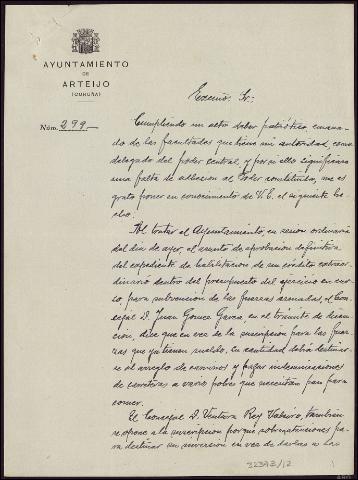 AYUNTAMIENTO
DE
ARTEIJO
(CORUÑA)
Núm. 299.-
Excmo. Sr:
Cumpliendo un alto deber patriótico, emana-
do de las facultades que tiene mi autoridad, como
delegado del poder central, y por si ello significara
una falta de adhesion al Poder constituido, me es
grato poner en conocimiento de V. E. el siguiente he-
cho.
Al tratar el Ayuntamiento, en sesion ordinaria
del dia de ayer, el asunto de aprobacion definitiva
del expediente de habilitacion de un crédito extraor-
dinario dentro del presupuesto del ejercicio en cur-
so, para subvencion de las fuerzas armadas, el Con-
cejal D. Juan Gomez Garcia en el trámite de discu-
sion, dice que en vez de la suscripcion para las fuer-
zas que ya tienen sueldo, su cantidad debia destinar-
se al arreglo de caminos y pagar indemnizaciones
de carreteras a varios pobres que necesitan pan para
comer.
El Concejal D. Ventura Rey tambien
se opone a la suscripcion porqué pa-
ra destinar su inversion en vez de darlas a las
32392/12